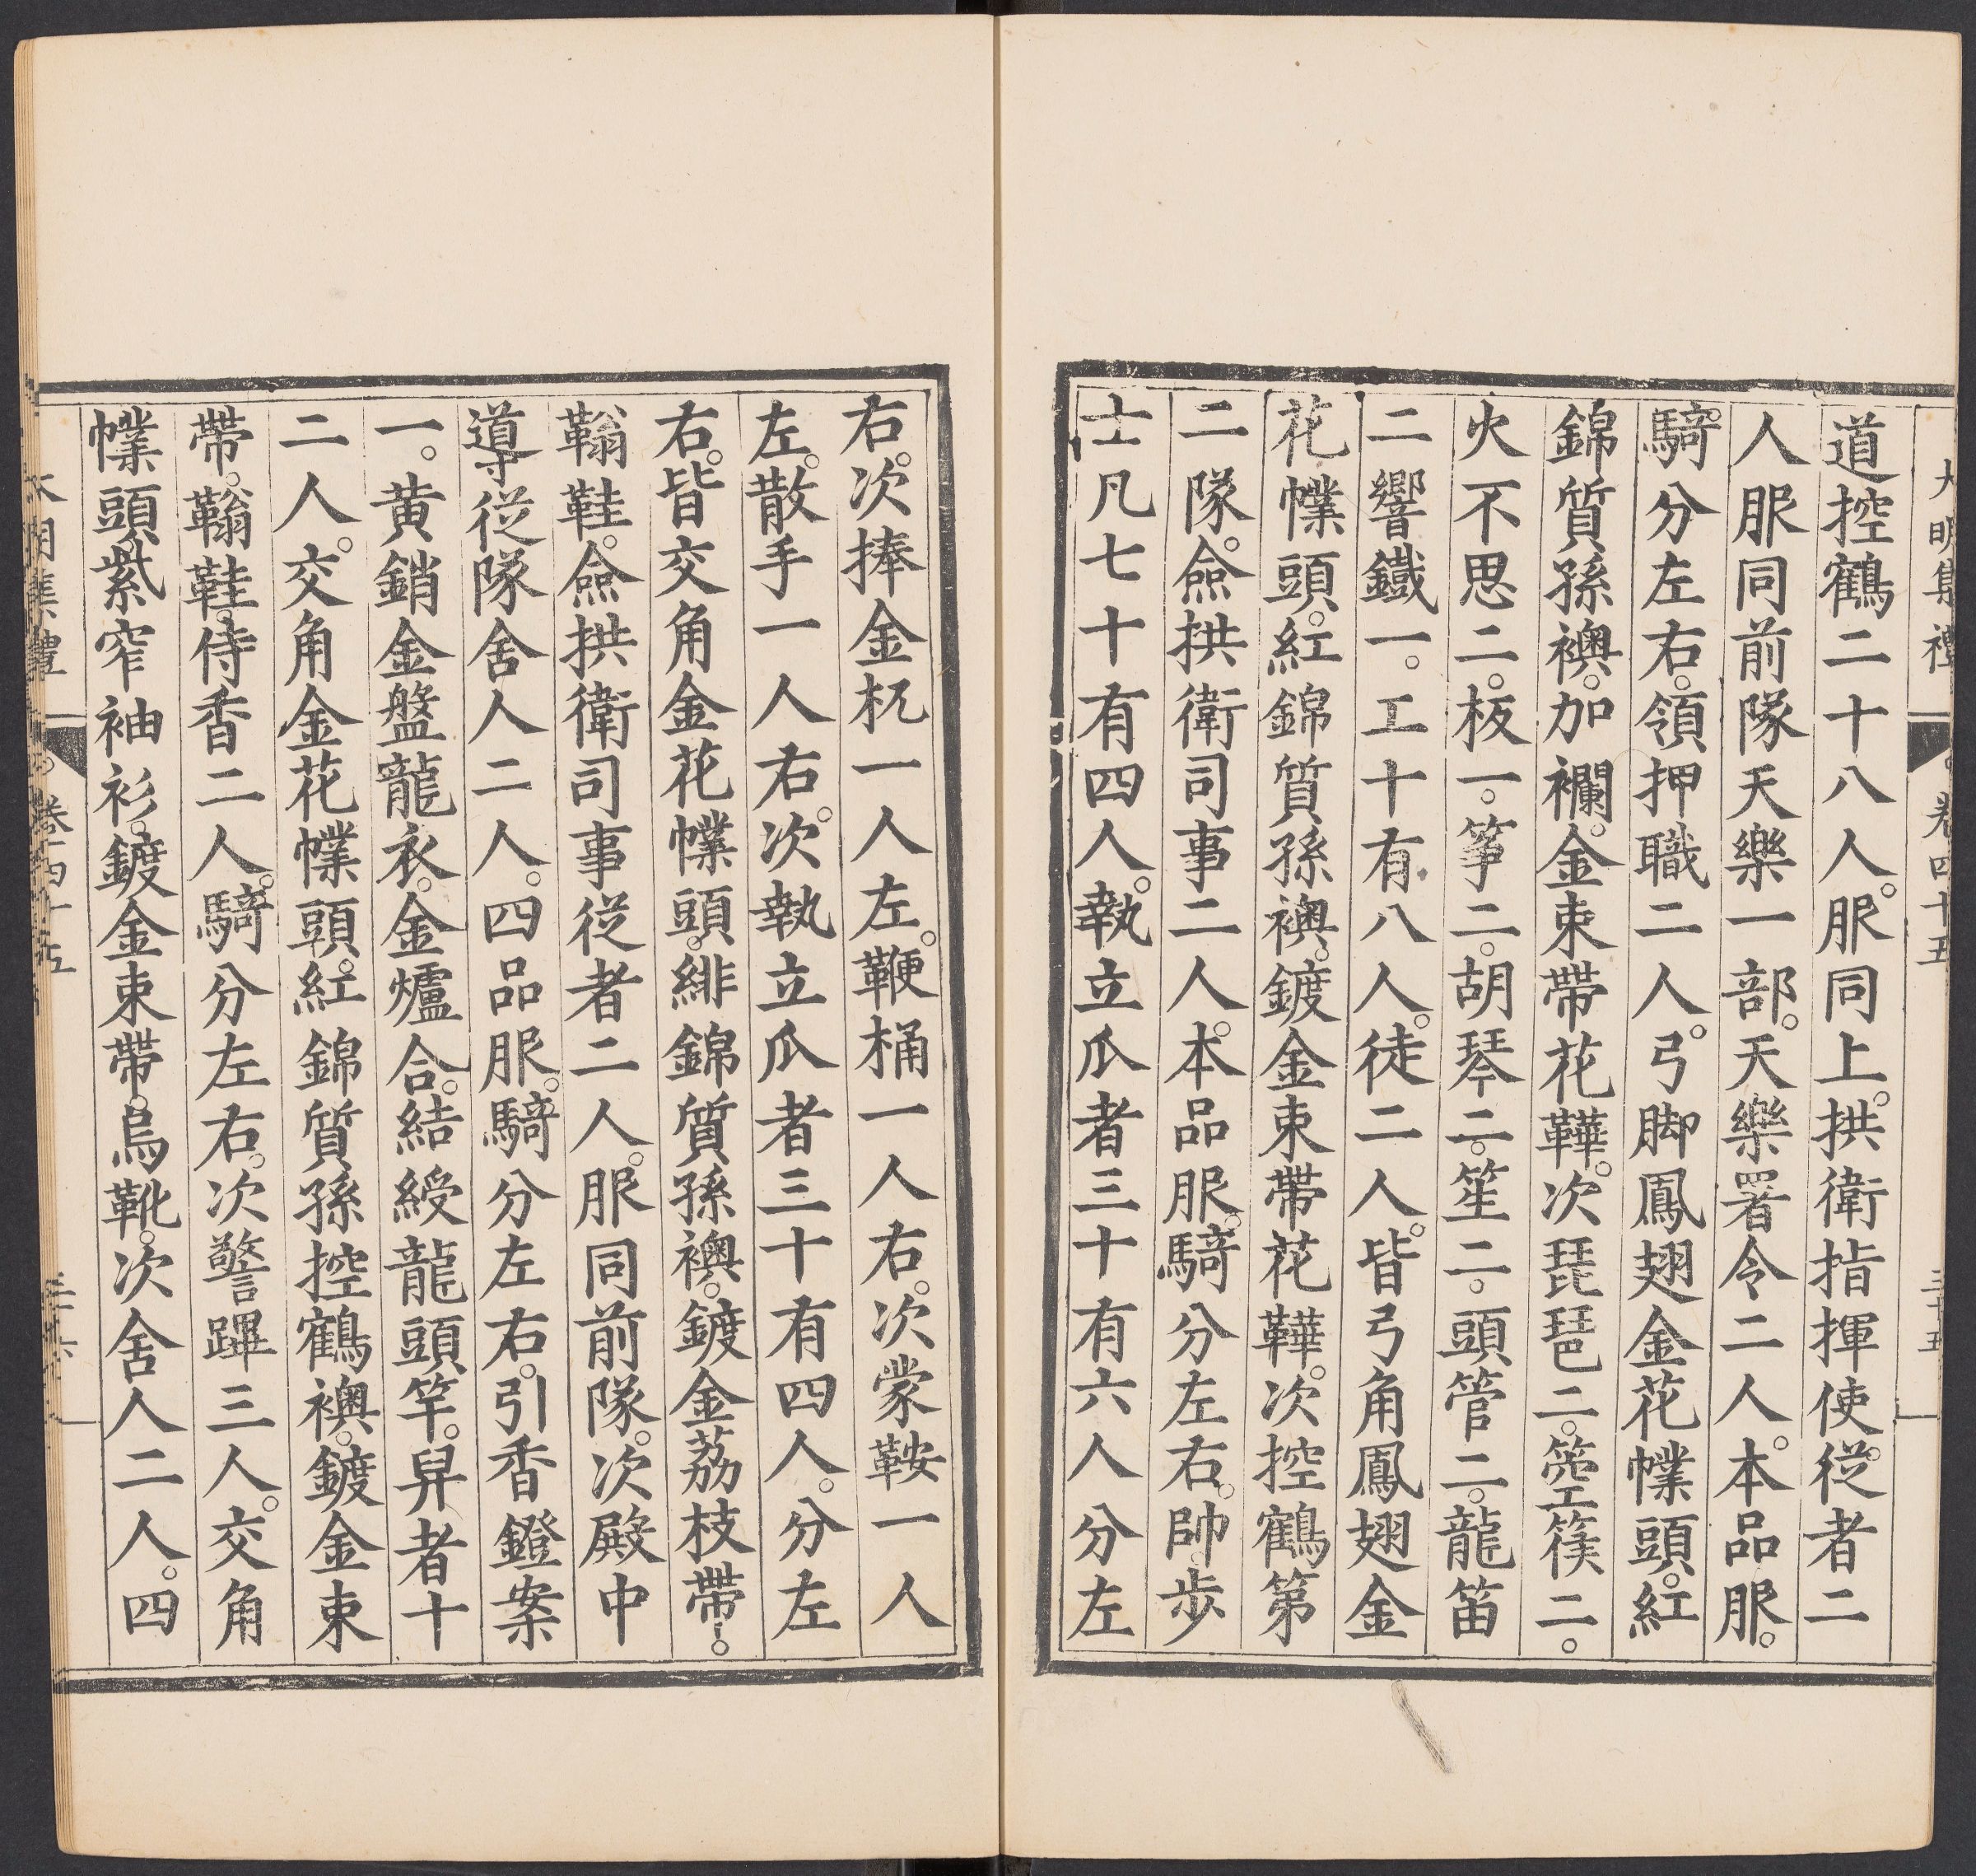 大明集禮 卷四十五 三十五
道控鶴二十八人。服同上。拱衛指揮使。從者二
人服同前隊天樂一部。天樂署令二人。本品服。
騎分左右。領押職二人。弓脚鳳翅金花幞頭。紅
錦質孫襖。加襴。金束帶花鞾。次琵琶二。箜篌二。
火不思二。板一。箏二。胡琴二。笙二。頭管二。龍笛
二響鐵一。工十有八人。徒二人。皆弓角鳳翅金
花幞頭。紅錦質孫襖。鍍金束帶花鞾。次控鶴第
二隊。僉拱衛司事二人。本品服。騎分左右。帥。步
士凡七十有四人。執立瓜者三十有六人分左
右。次捧金杌一人左。鞭桶一人右。次蒙鞍一人
左。散手一人右。次執立瓜者三十有四人。分左
右。皆交角金花幞頭。緋錦質孫襖。鍍金荔枝帶。
鞝鞋。僉拱衛司事從者二人。服同前隊。次殿中
導從隊舍人二人。四品服。騎分左右。引香鐙案
一。黃銷金盤龍衣。金爐合。結綬龍頭竿。舁者十
二人。交角金花幞頭。紅錦質孫控鶴襖。鍍金束
帶。鞝鞋。侍香二人。騎分左右。次警蹕三人。交角
幞頭。紫窄袖衫。鍍金束帶。烏靴。次舍人二人。四
大明集禮 卷四十五 三十六